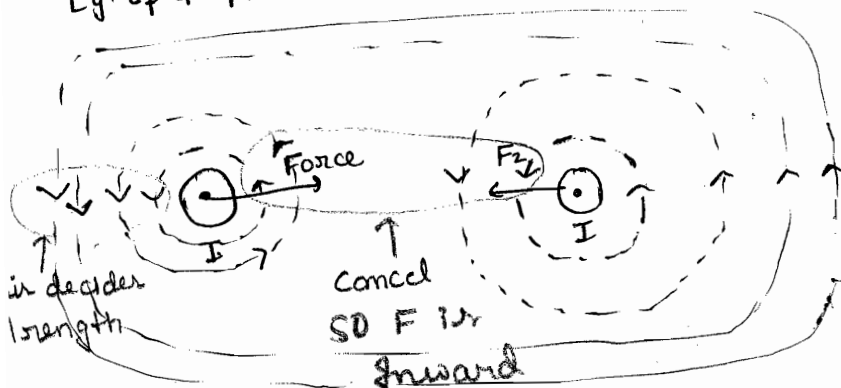 Force
F2
I
I
is decides
strength
Cancel
SO F is
Inward